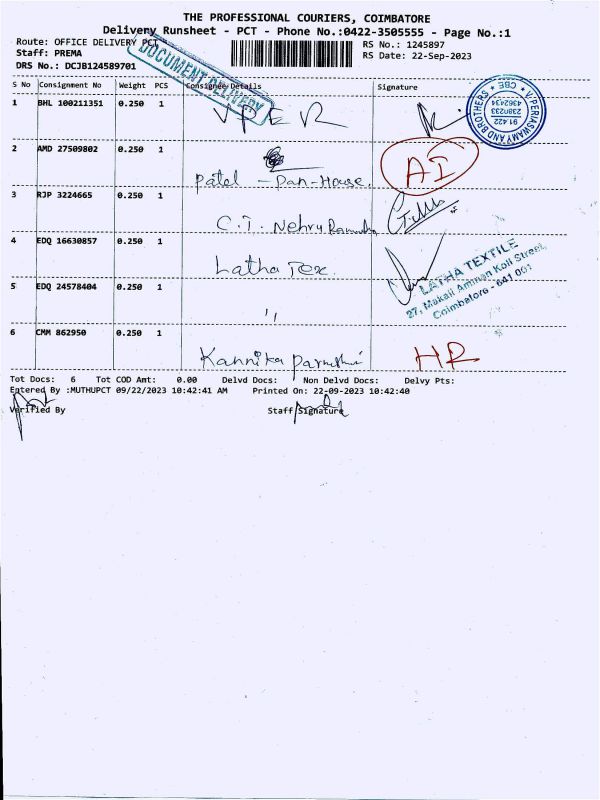 THE PROFESSIONAL COURIERS, COIMBATORE
Delivery Runsheet - PCT - Phone No.:0422-3505555 - Page No.:1
Route: OFFICE DELIVERY PCT
RS No.: 1245897
Staff: PREMA
RS Date: 22-Sep-2023
DRS No.: DCJB124589701
DOCUMENT DELIVERY
S No Consignment No Weight PCS Consignee Details Signature
1 BHL 100211351 0.250 1 VPER
V. PERIASWAMY AND BROTHERS * CBE *
91 422
2380233
4362434
2 AMD 27509802 0.250 1 Patel - Pan-House. AI
3 RJP 3224665 0.250 1 C.T. Nehru
4 EDQ 16630857 0.250 1 Latha Tex
LATHA TEXTILE
27, Makali Amman Koil Street,
Coimbatore - 641 001
5 EDQ 24578404 0.250 1 ''
6 CMM 862950 0.250 1 Kannika HR
Tot Docs: 6 Tot COD Amt: 0.00 Delvd Docs: Non Delvd Docs: Delvy Pts:
Entered By :MUTHUPCT 09/22/2023 10:42:41 AM Printed On: 22-09-2023 10:42:40
Verified By Staff Signature